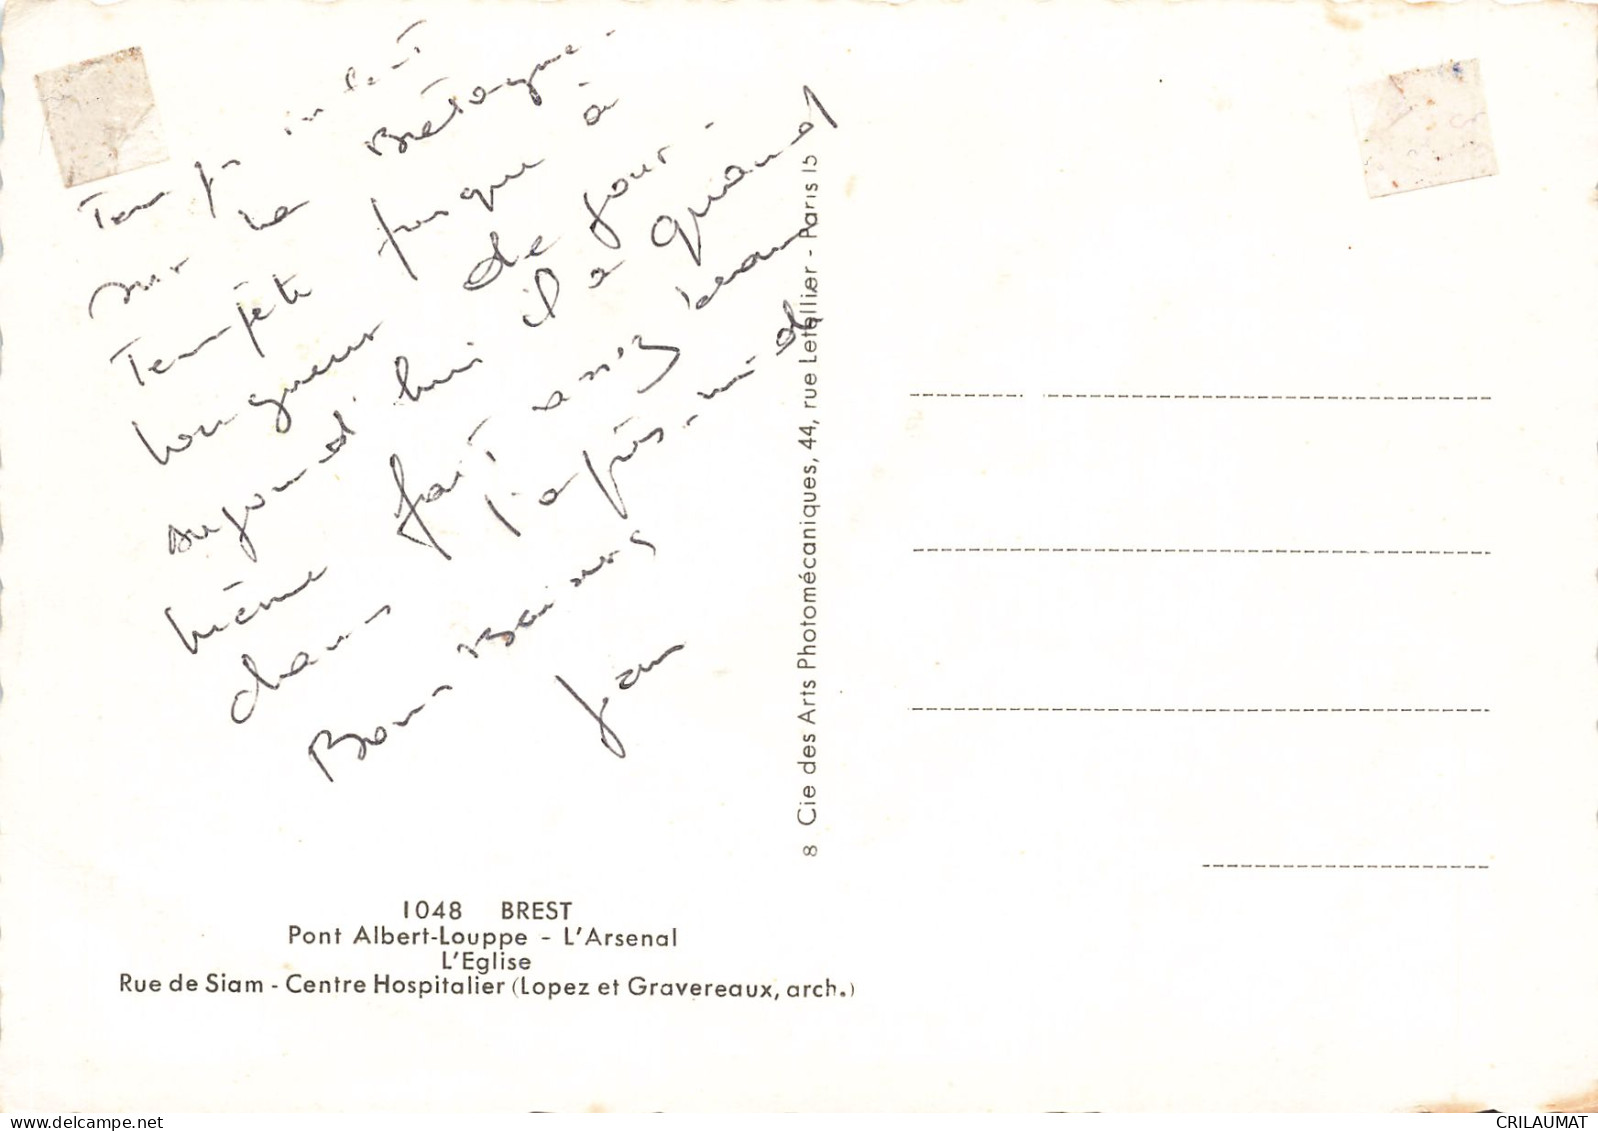 sur la Bretagne.
Tempête jusque à
longueur de jour.
aujourd'hui il a quand
même fait assez beau
dans l'après-midi
Bons Baisers
Jean
1048 BREST
Pont Albert-Louppe - L'Arsenal
L'Eglise
Rue de Siam - Centre Hospitalier (Lopez et Gravereaux, arch.)
8 Cie des Arts Photomécaniques, 44, rue Letellier - Paris 15
CRILAUMAT